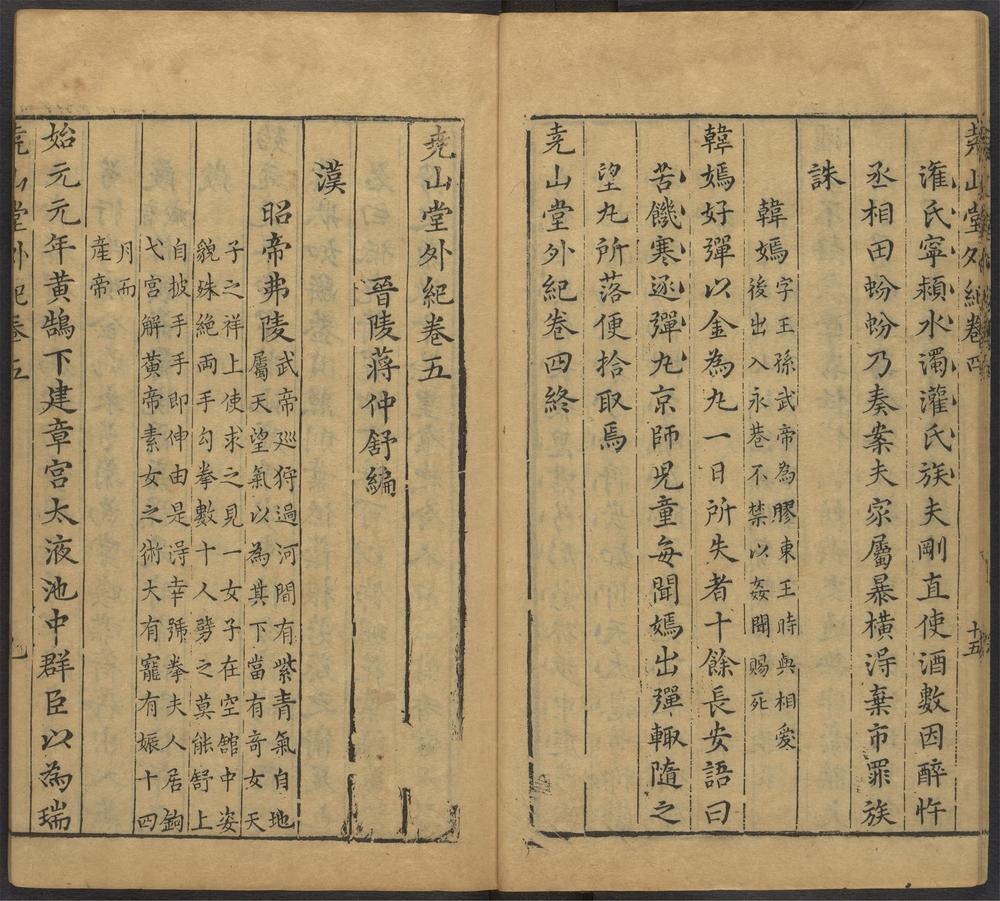 堯山堂外紀卷四
十五
濰氏寧頴水濁灌氏族夫剛直使酒數因醉忤
丞相田蚡蚡乃奏案夫家屬暴橫淂棄市罪族
誅
韓嫣字王孫武帝為膠東王時與相愛
後出入永巷不禁以姦聞賜死
韓嫣好彈以金為丸一日所失者十餘長安語曰
苦饑寒逐彈丸京師児童每聞嫣出彈輙隨之
望丸所落便拾取焉
堯山堂外紀卷四終
堯山堂外紀卷五
晉陵蔣仲舒編
漢
昭帝弗陵武帝廵狩過河間有紫青氣自地
屬天望氣以為其下當有奇女天
子之祥上使求之見一女子在空舘中姿
貌殊絶両手勾拳數十人擘之莫能舒上
自披手手即伸由是淂幸號拳夫人居鉤
弋宮解黄帝素女之術大有寵有娠十四
月而
產帝
始元元年黄鵠下建章宫太液池中群臣以為瑞
堯山堂外紀卷五